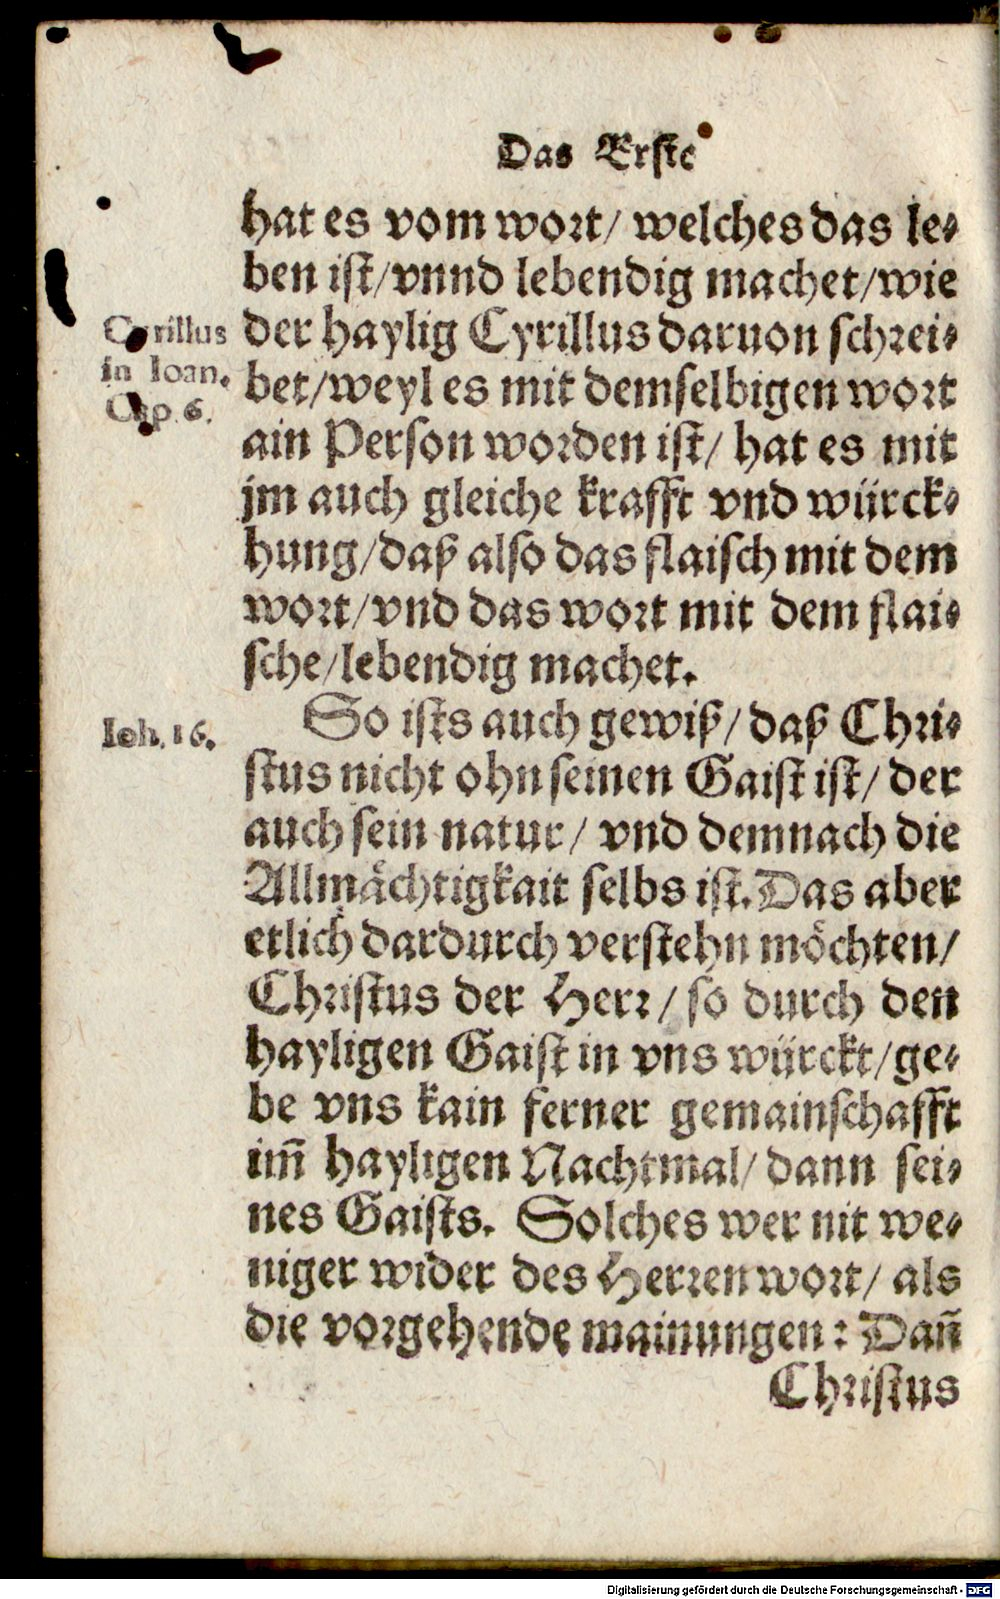 Das Erste
hat es vom wort/ welches das le-
ben ist/vnnd lebendig machet/wie
der haylig Cyrillus daruon schrei-
bet/weyl es mit demselbigen wort
ain Person worden ist/ hat es mit
jm auch gleiche krafft vnd würck-
hung/daß also das flaisch mit dem
wort/vnd das wort mit dem flai-
sche/lebendig machet.
Cyrillus
in Ioan.
Cap. 6.
So ists auch gewiß/ daß Chri-
stus nicht ohn seinen Gaist ist/ der
auch sein natur/ vnd demnach die
Allmächtigkait selbs ist. Das aber
etlich dardurch verstehn möchten/
Christus der Herr/ so durch den
hayligen Gaist in vns würckt/ge-
be vns kain ferner gemainschafft
im̃ hayligen Nachtmal/ dann sei-
nes Gaists. Solches wer nit we-
niger wider des Herren wort/ als
die vorgehende mainungen: Dañ
Christus
Ioh. 16.
Digitalisierung gefördert durch die Deutsche Forschungsgemeinschaft - DFG